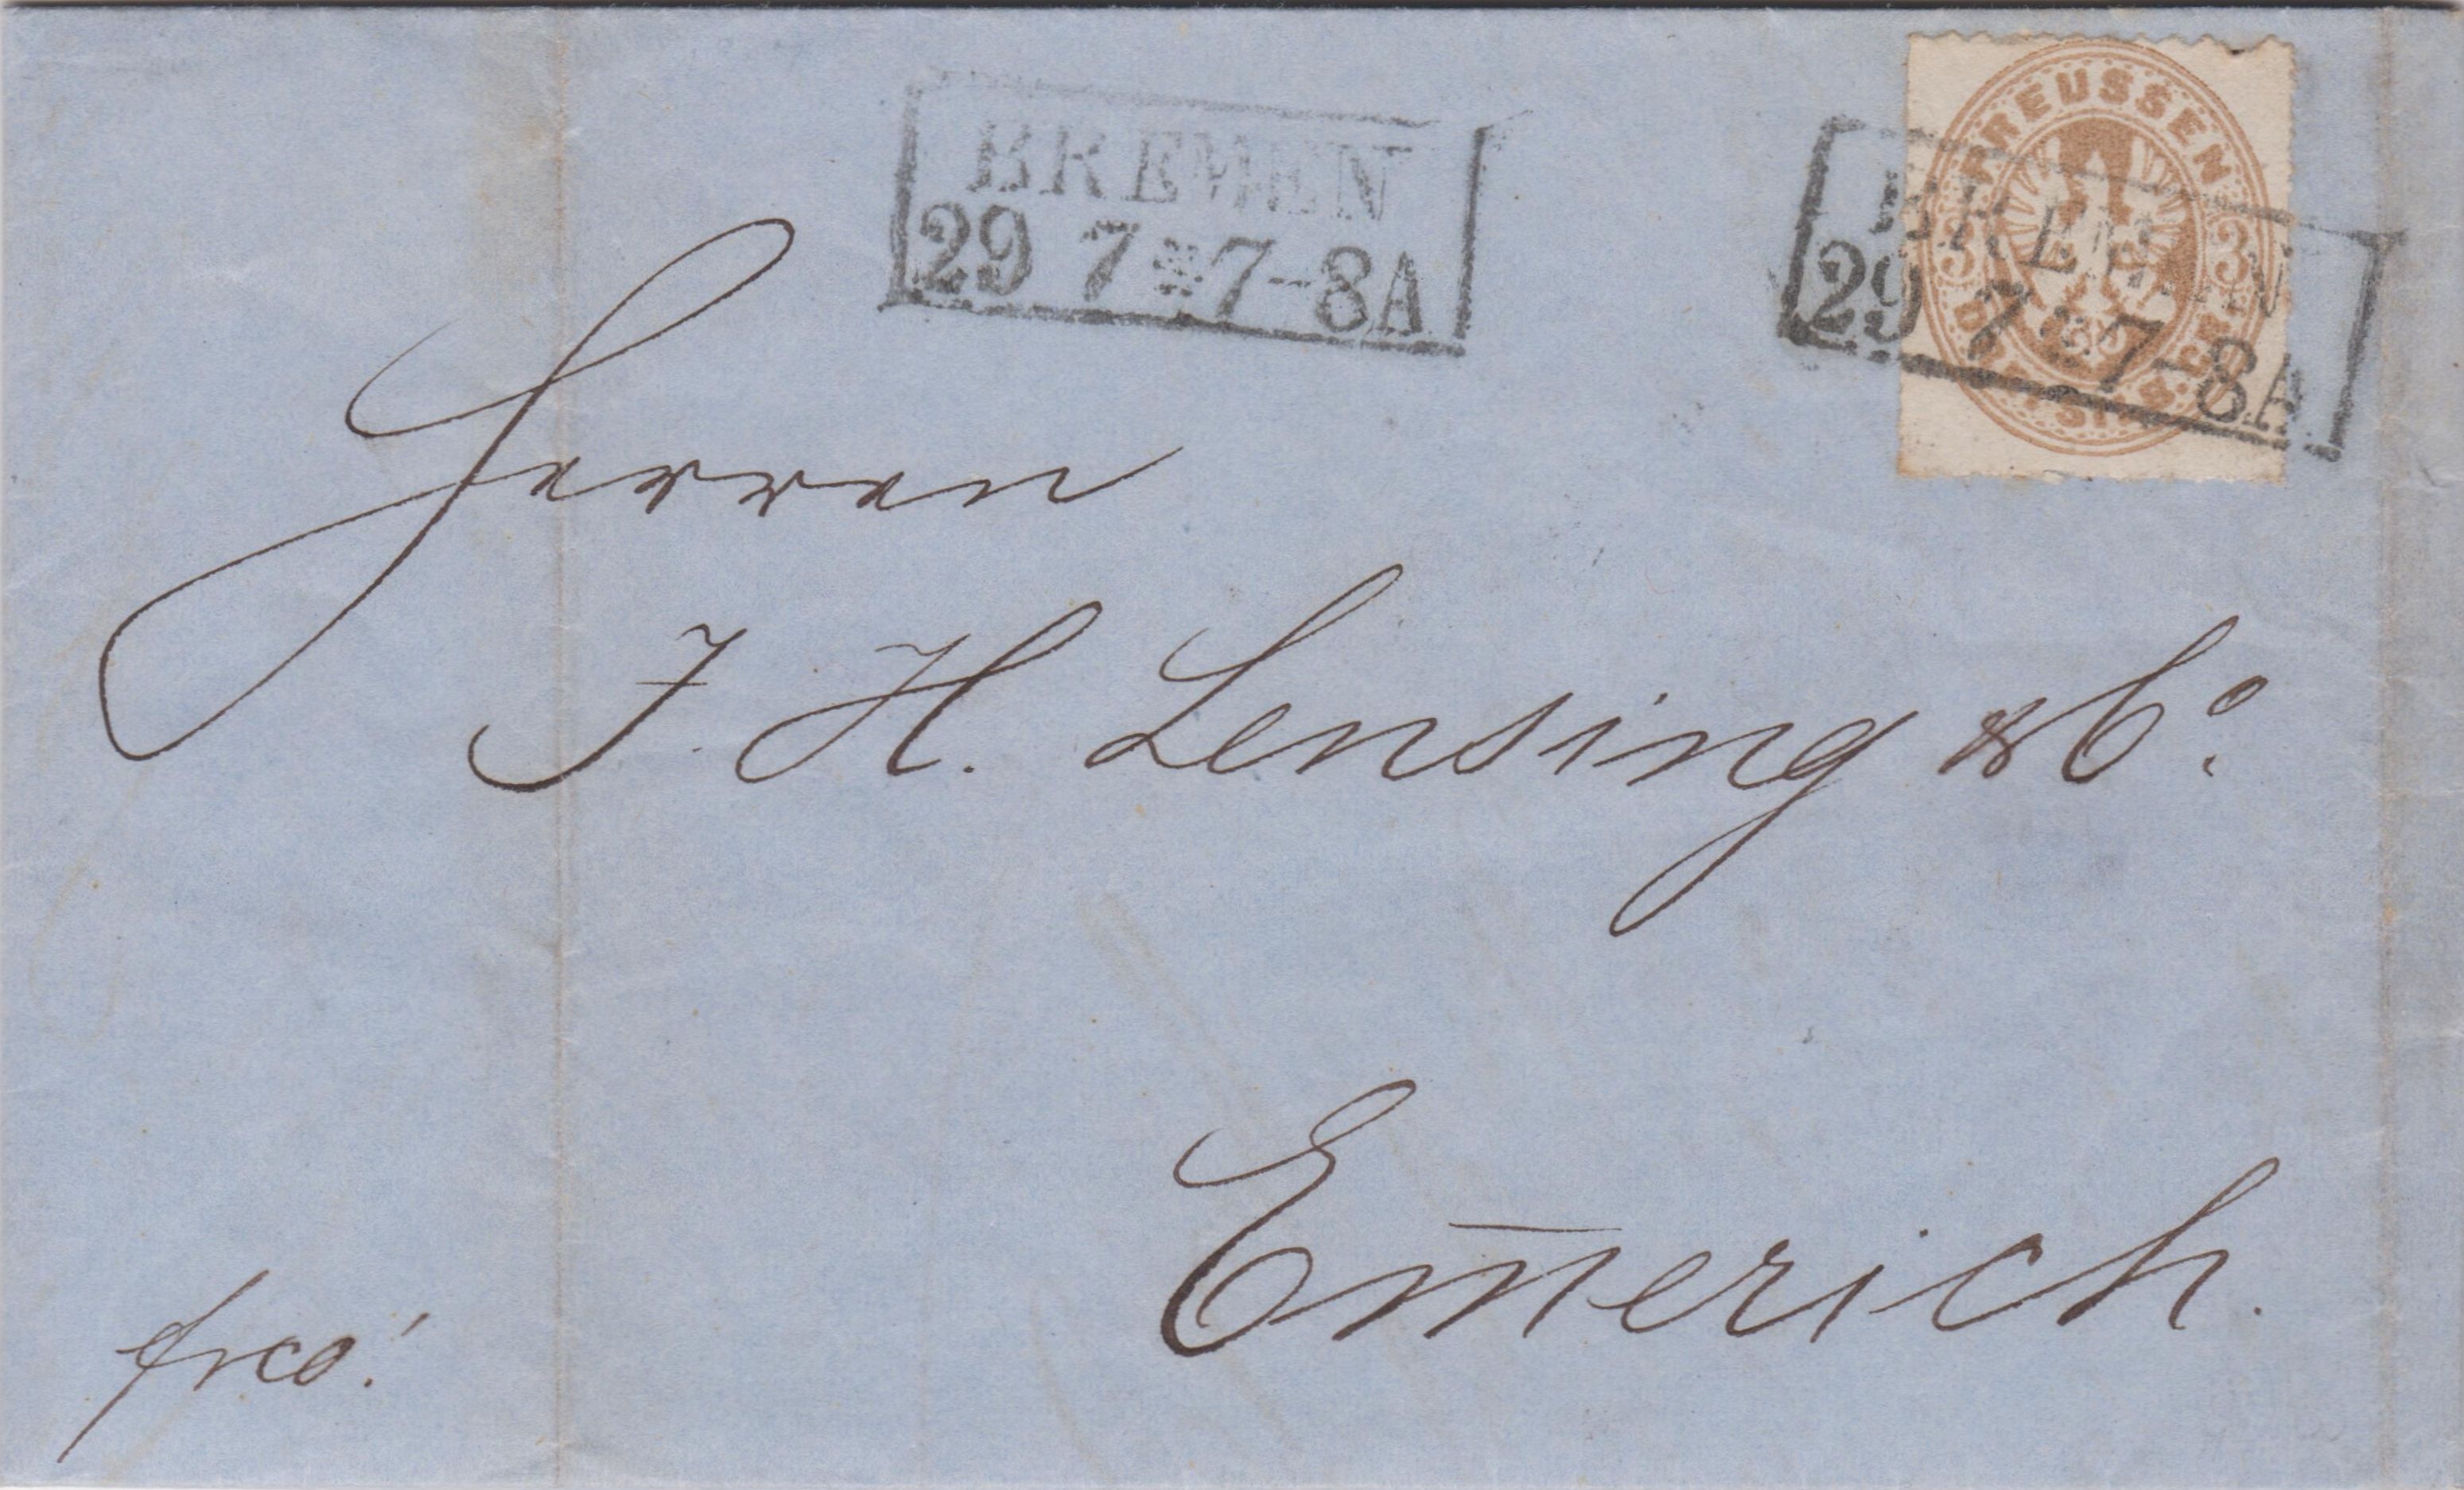 BREMEN
29 7 ※ 7-8A
PREUSSEN
3 3
DREI SILB. GR.
BREMEN
29 7 ※ 7-8A
Herren
J. H. Lensing & Co.
Em̅erich.
frco!